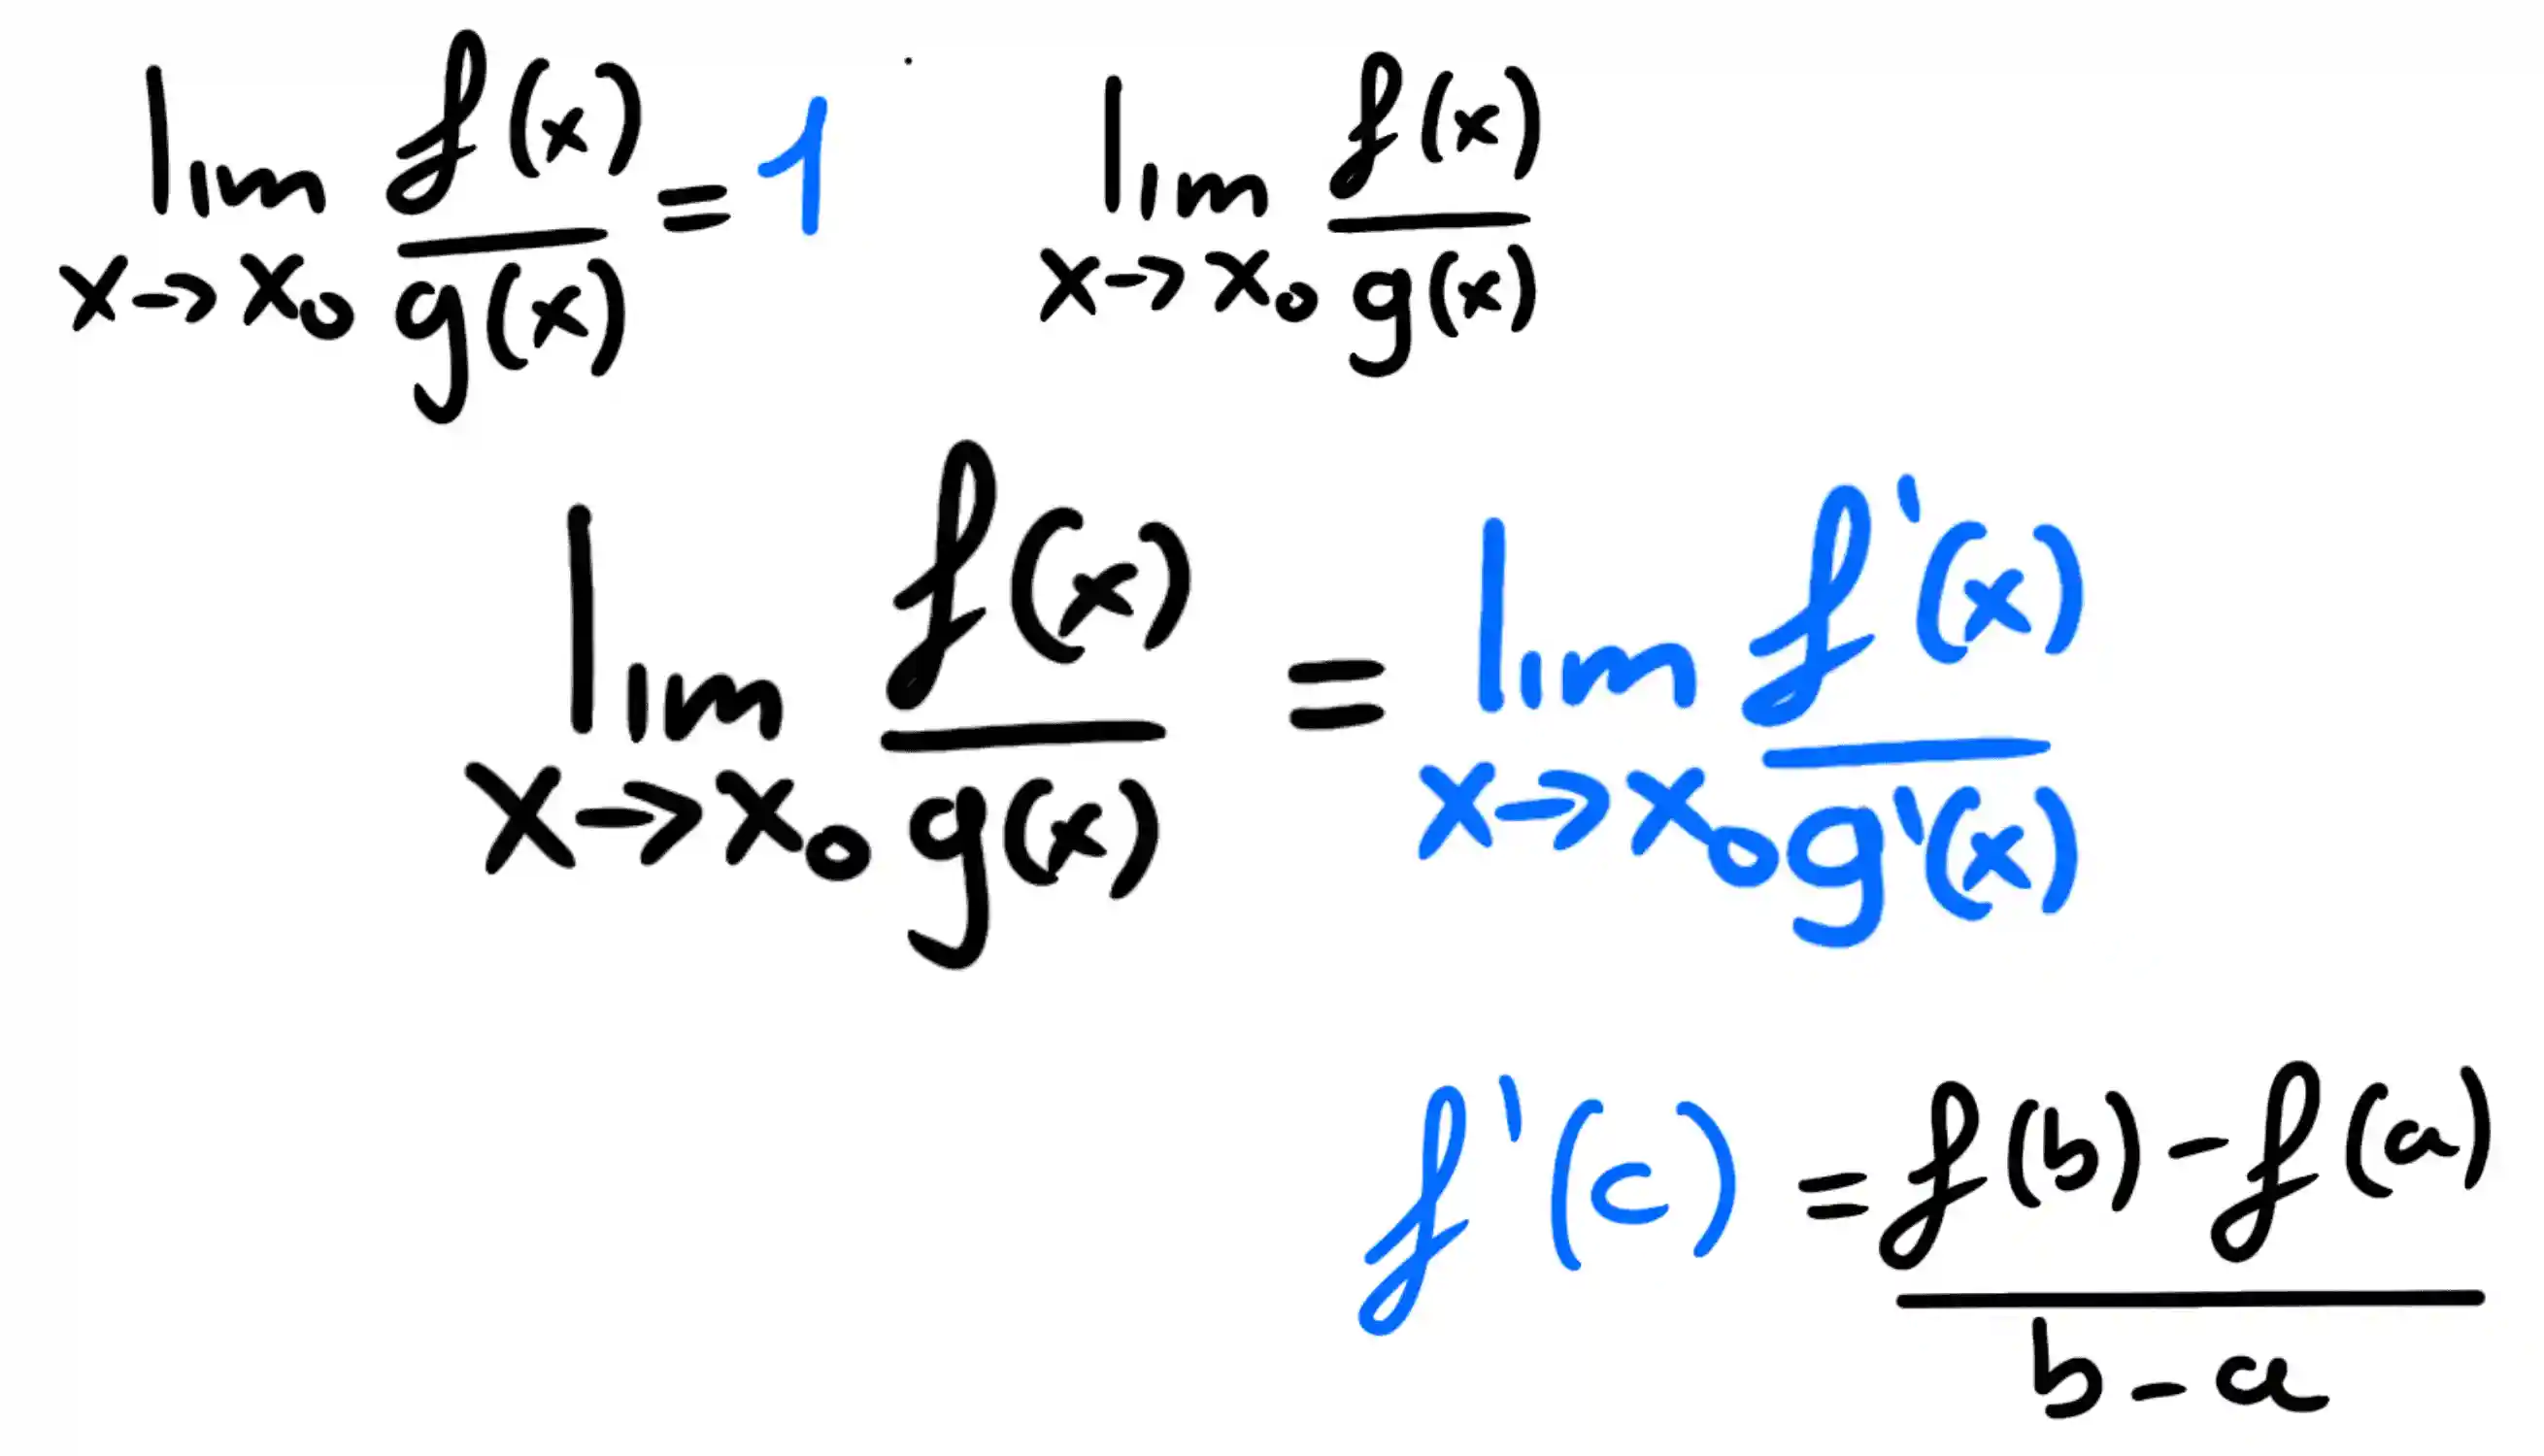 lim x→x₀ f(x)/g(x) = 1
lim x→x₀ f(x)/g(x)
lim x→x₀ f(x)/g(x) = lim x→x₀ f'(x)/g'(x)
f'(c) = f(b)-f(a)/b-a